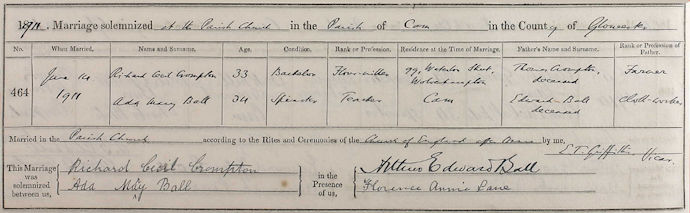 1911. Marriage solemnized at the Parish Church in the Parish of Cam in the County of Gloucester
No. When Married. Name and Surname. Age. Condition. Rank or Profession. Residence at the Time of Marriage. Father's Name and Surname. Rank or Profession of Father.
464
June 14 Richard Cecil Crompton 33 Bachelor 99, Waterloo Street, Wolverhampton Thomas Crompton, deceased Farmer
1911 Ada May Ball 34 Spinster Teacher Cam Edward Ball deceased Cloth-worker
Married in the Parish Church according to the Rites and Ceremonies of the Church of England after Banns by me,
E. T. Griffiths Vicar.
This Marriage was solemnized between us, Richard Cecil Crompton in the Presence of us, Arthur Edward Ball
Ada May Ball Florence Annie Lane